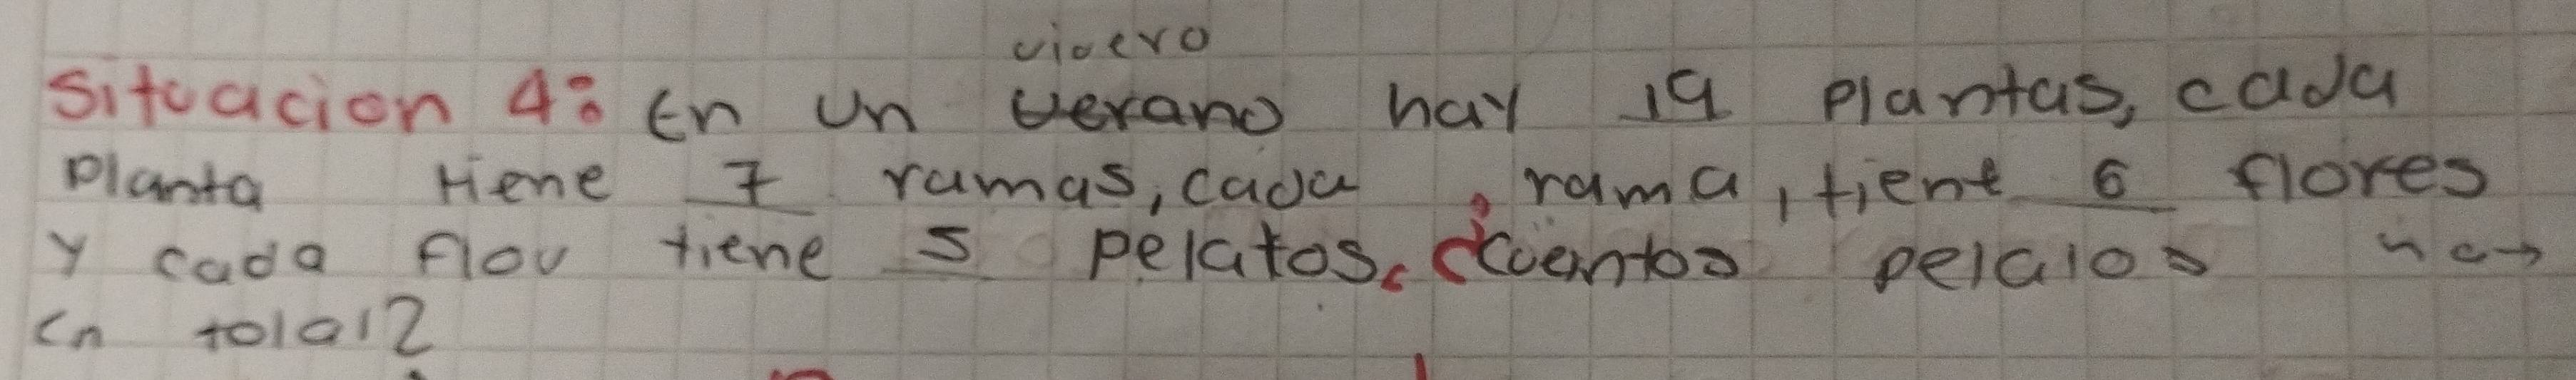 vivero
Situacion 4: En un verano hay 19 plantas, cada
planta tiene 7 ramas, cada rama, tiene 6 flores
y cada flor tiene 5 pelatos. ¿Cuantos pelalos
en total?